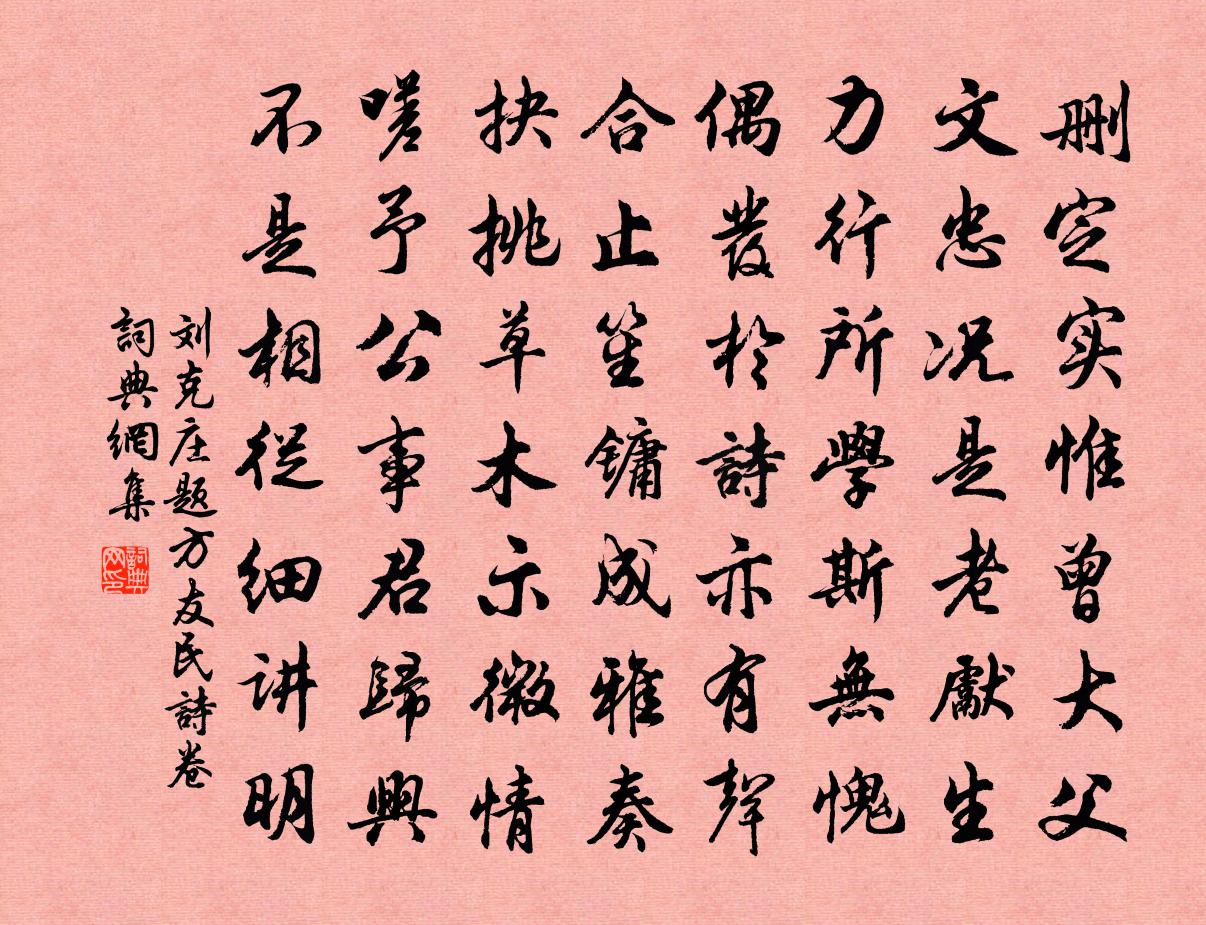 删定实惟曾大父
文忠况是老獻生
力行所學斯無愧
偶發於詩亦有聲
合止笙鏞成雅奏
抉挑草木示微情
嗟予公事君歸興
不是相從细讲明
刘克庄题方友民詩卷
詞典網集
詞典网印